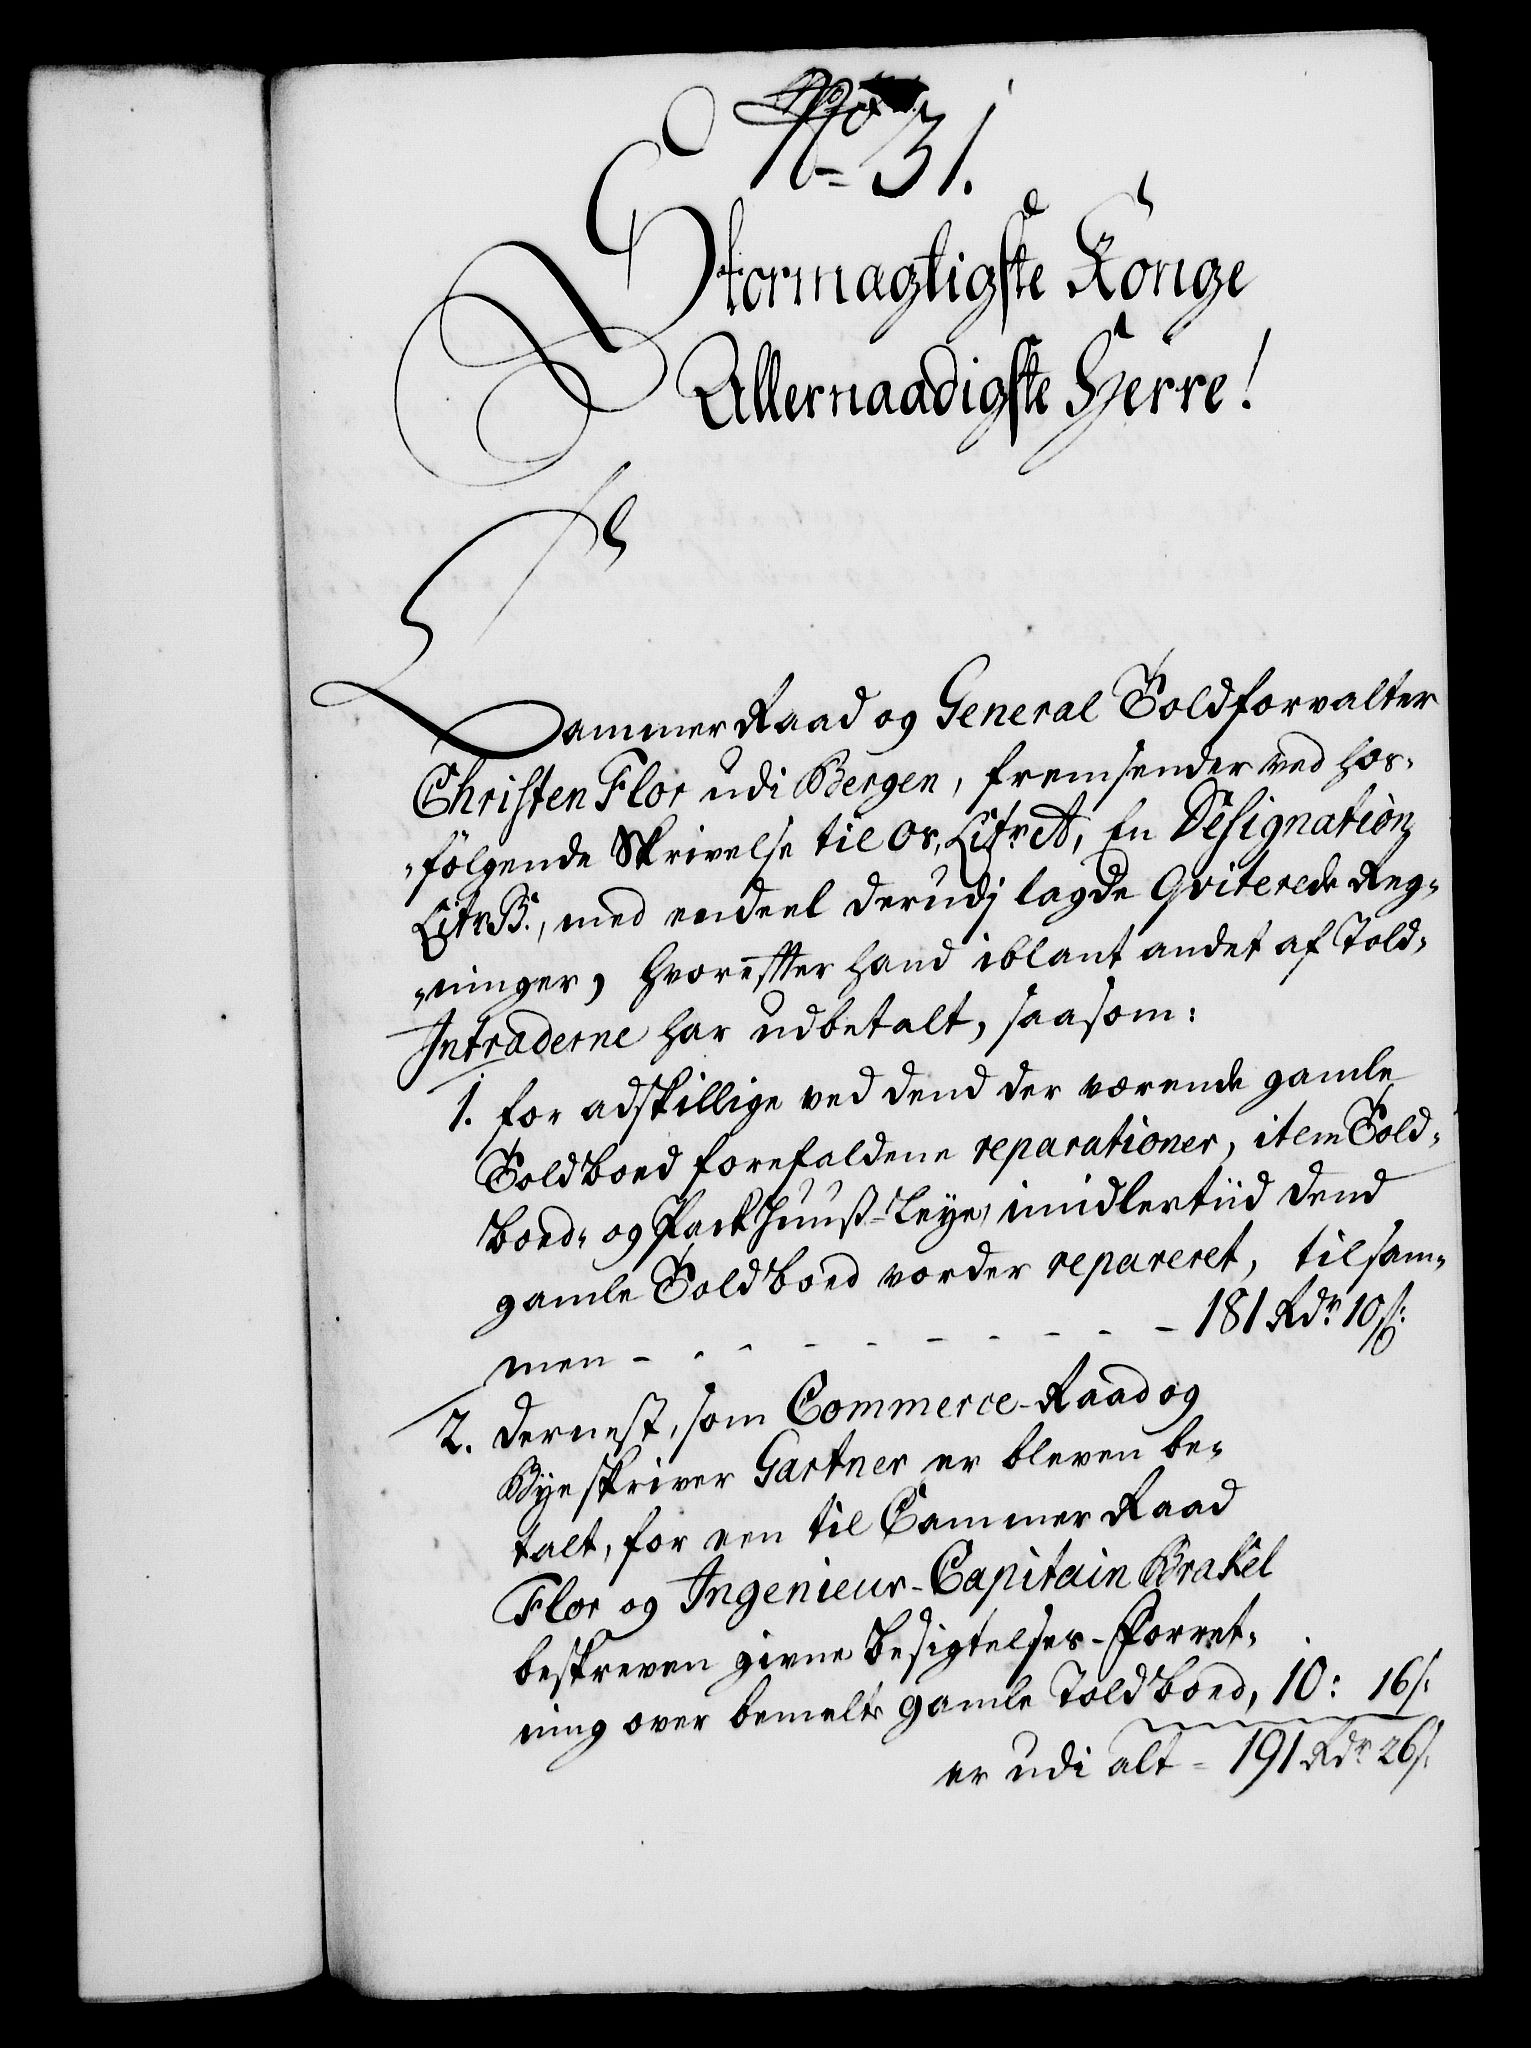 No 31.
Stormagtigste Konge
Allernaadigste Herre!
Cammer Raad og General Toldforvalter
Christen Flor udi Bergen, fremsender ved hos-
-følgende Skrivelse til Os, Litr. A, En Designation,
Litr. B., med endeel derudj lagde Qviterede Reg-
-ninger, hvorefter hand iblant andet af Told-
Intraderne har udbetalt, saasom:
1. for adskillige ved dend der værende gamle
Toldboed forefaldene reparationer, item Told-
boed- og Packhuuss-Leye, imidlertiid dend
gamle Toldboed vorder repareret, tilsam-
men - - - - - - - - - 181 Rdr. 10 s:
2. dernest, som Commerce-Raad og
Byeskriver Gartner er bleven be-
talt, for een til Cammer Raad
Flor og Ingenieur-Capitain Brakel
beskreven givne Besigtelses-Forret-
ning over bemelte gamle Toldboed, 10: 16 s:
er udi alt - 191 Rdr. 26 s: